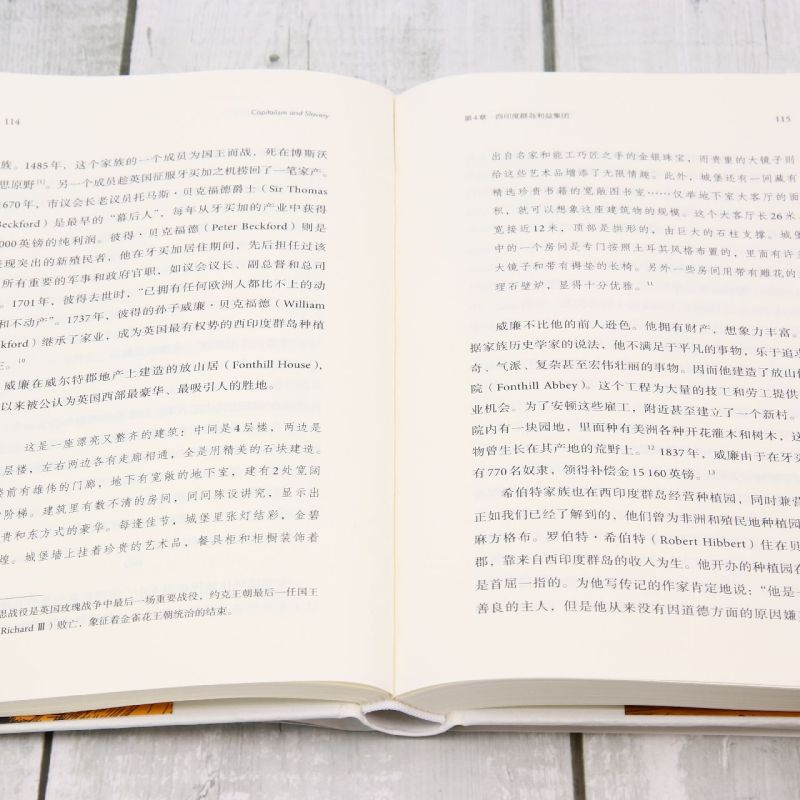 114
Capitalism and Slavery
族。1485年，这个家族的一个成员为国王而战，死在博斯沃
思原野[1]。另一个成员趁英国征服牙买加之机捞回了一笔家产。
1670年，市议会长老议员托马斯·贝克福德爵士（Sir Thomas
Beckford）是最早的“幕后人”，每年从牙买加的产业中获得
000英镑的纯利润。彼得·贝克福德（Peter Beckford）则是
表现突出的新殖民者，他在牙买加居住期间，先后担任过该
所有重要的军事和政府官职，如议会议长、副总督和总司
。1701年，彼得去世时，“已拥有任何欧洲人都比不上的动
和不动产”。1737年，彼得的孙子威廉·贝克福德（William
ckford）继承了家业，成为英国最有权势的西印度群岛种植
主。10
威廉在威尔特郡地产上建造的放山居（Fonthill House），
以来被公认为英国西部最豪华、最吸引人的胜地。
这是一座漂亮又整齐的建筑：中间是4层楼，两边是
层楼，左右两边各有走廊相通，全是用精美的石块建造。
楼前有雄伟的门廊，地下有宽敞的地下室，建有2处宽阔
阶梯。建筑里有数不清的房间，间间陈设讲究，显示出
贵和东方式的豪华。每逢佳节，城堡里张灯结彩，金碧
煌。城堡墙上挂着珍贵的艺术品，餐具柜和柜橱装饰着
思战役是英国玫瑰战争中最后一场重要战役，约克王朝最后一任国王
Richard Ⅲ）败亡，象征着金雀花王朝统治的结束。
第4章 西印度群岛利益集团
115
出自名家和能工巧匠之手的金银珠宝，而贵重的大镜子则
给这些艺术品增添了无限情趣。此外，城堡还有一间藏有
精选珍贵书籍的宽敞图书室……仅举地下室大客厅的面
积，就可以想象这座建筑物的规模。这个大客厅长26米，
宽接近12米，顶部是拱形的，由巨大的石柱支撑。城堡
中的一个房间是专门按照土耳其风格布置的，里面有许多
大镜子和带有褥垫的长椅。另外一些房间用带有雕花的
理石壁炉，显得十分优雅。11
威廉不比他的前人逊色。他拥有财产，想象力丰富。
据家族历史学家的说法，他不满足于平凡的事物，乐于追求
奇、气派、复杂甚至宏伟壮丽的事物。因而他建造了放山修
院（Fonthill Abbey）。这个工程为大量的技工和劳工提供
业机会。为了安顿这些雇工，附近甚至建立了一个新村。
院内有一块园地，里面种有美洲各种开花灌木和树木，这
物曾生长在其产地的荒野上。12 1837年，威廉由于在牙买
有770名奴隶，领得补偿金15 160英镑。13
希伯特家族也在西印度群岛经营种植园，同时兼营
正如我们已经了解到的，他们曾为非洲和殖民地种植园
麻方格布。罗伯特·希伯特（Robert Hibbert）住在贝
郡，靠来自西印度群岛的收入为生。他开办的种植园在
是首屈一指的。为他写传记的作家肯定地说：“他是一
善良的主人，但是他从来没有因道德方面的原因嫌